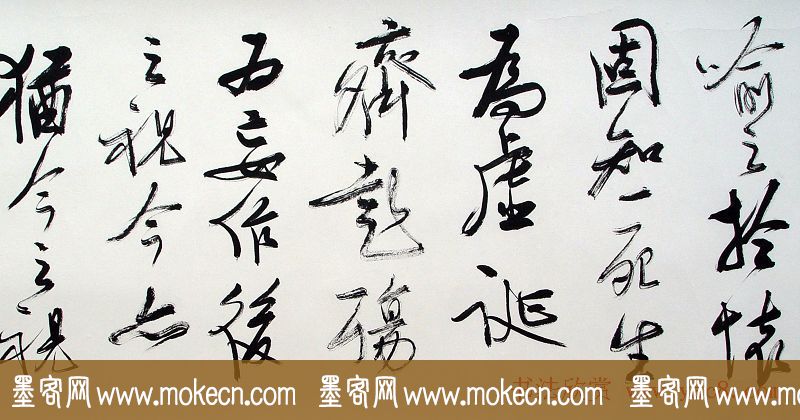 喻之於懷
固知一死生
為虛誕
齊彭殤
为妄作後
之視今亦
猶今之視
墨客网 www.mokecn.com 墨客网 www.mokecn.com 墨客网 www.mokecn.com
书法欣赏